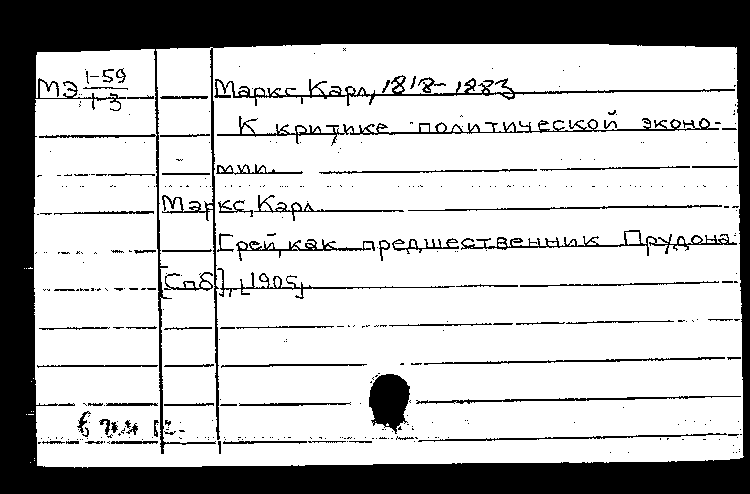 МЭ 1-59
1-3
Маркс, Карл, 1818-1883
К критике политической эконо-
мии.
Маркс, Карл.
Грей, как предшественник Прудона
[Спб], [1905].